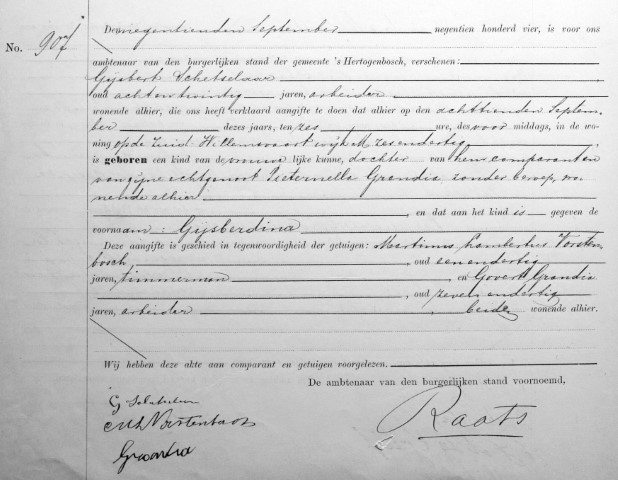 Den negentienden September negentien honderd vier, is voor ons
No. 907
ambtenaar van den burgerlijken stand der gemeente 's Hertogenbosch, verschenen:
Gijsbert Schetselaar
oud achtentwintig jaren, arbeider
wonende alhier, die ons heeft verklaard aangifte te doen dat alhier op den achttienden Septem-
ber dezes jaars, ten zes ure, des voor middags, in de wo-
ning op de Zuid Willemsvaart wijk M zesendertig
is geboren een kind van de vrouwe lijke kunne, dochter van hem comparant en
van zijne echtgenoot Pieternella Grandia, zonder beroep, wo-
nende alhier
, en dat aan het kind is gegeven de
voornaam: Gijsberdina
Deze aangifte is geschied in tegenwoordigheid der getuigen: Martinus Lambertus Vorsten-
bosch, oud eenendertig
jaren, timmerman en Govert Grandia
, oud zevenendertig
jaren, arbeider , beiden wonende alhier.
Wij hebben deze akte aan comparant en getuigen voorgelezen.
De ambtenaar van den burgerlijken stand voornoemd,
G
M L Vorstenbosch
Raats